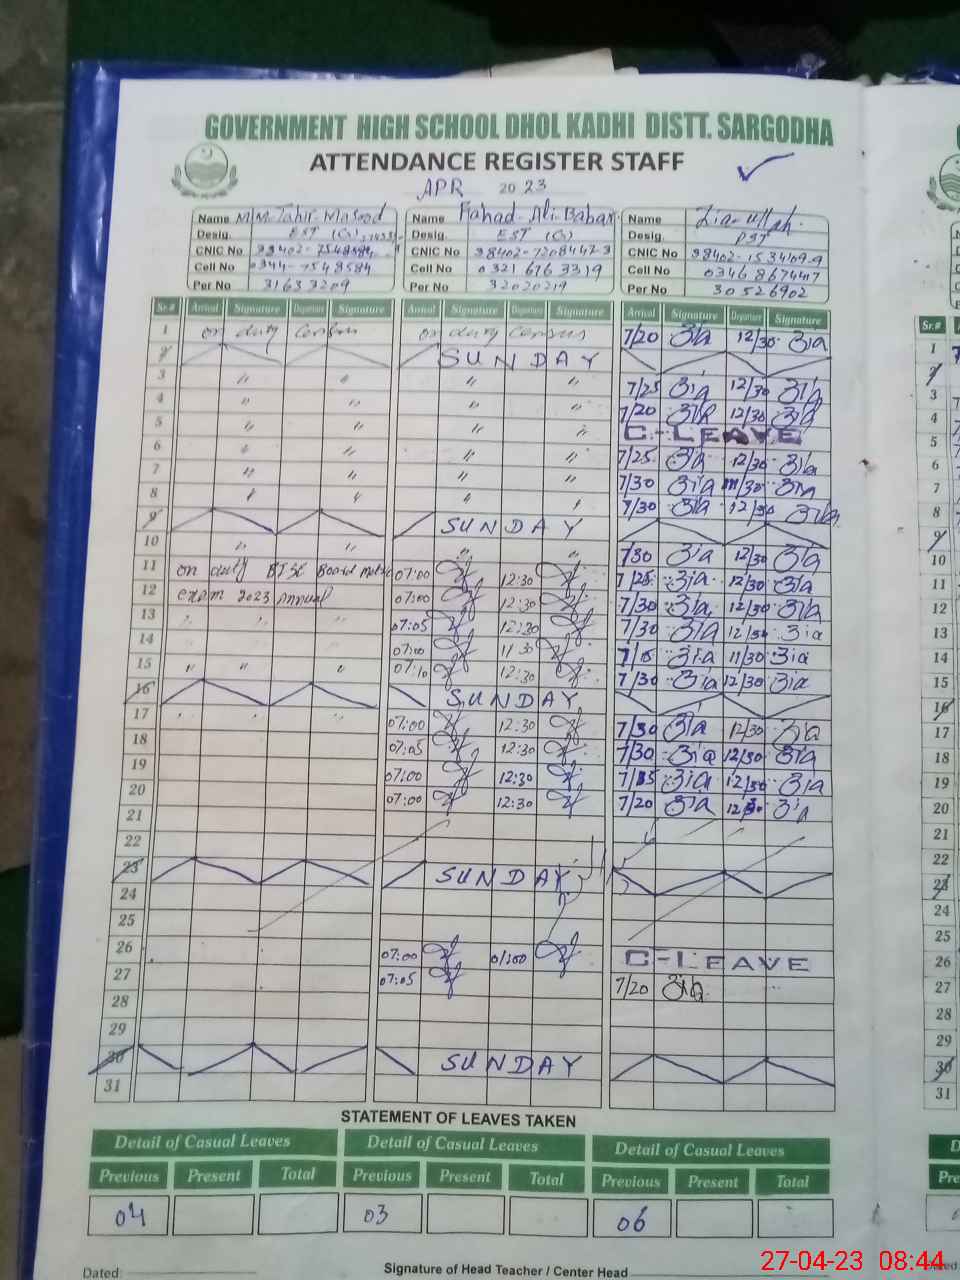 GOVERNMENT HIGH SCHOOL DHOL KADHI DISTT. SARGODHA
ATTENDANCE REGISTER STAFF
APR 2023
Name M.M. Tahir Masood Name Fahad Ali Babar Name Zia-ullah
Desig. EST (G) Desig. EST (G) Desig. PST
CNIC No CNIC No CNIC No
Cell No 0344-7548584 Cell No 0321 676 3319 Cell No 0346 8674417
Per No 31633209 Per No 32020219 Per No 30526902
Sr.# Arrival Signature Departure Signature Arrival Signature Departure Signature Arrival Signature Departure Signature
1 on duty Census on duty Census 7/20 Zia 12/30 Zia
2 SUNDAY
3 〃 〃 〃 〃 7/25 Zia 12/30 Zia
4 〃 〃 〃 〃 7/20 Zia 12/30 Zia
5 〃 〃 〃 〃 C-LEAVE
6 〃 〃 〃 〃 7/25 Zia 12/30 Zia
7 〃 〃 〃 〃 7/30 Zia Zia
8 〃 〃 〃 〃 7/30 Zia 12/30 Zia
9 SUNDAY
10 〃 〃 〃 〃 7/30 Zia 12/30 Zia
11 on duty BISE Board 07:00 12:30 7/25 Zia 12/30 Zia
12 exam 2023 Annual 07:00 12:30 7/30 Zia 12/30 Zia
13 〃 〃 〃 07:05 12:30 7/30 Zia 12/30 Zia
14 〃 〃 〃 07:00 11/30 Zia 11/30 Zia
15 〃 〃 〃 07:10 12:30 7/30 Zia 12/30 Zia
16 SUNDAY
17 〃 〃 〃 07:00 12:30 7/30 Zia 12/30 Zia
18 07:05 12:30 7/30 Zia 12/30 Zia
19 07:00 12:30 Zia 12/30 Zia
20 07:00 12:30 7/20 Zia 12/30 Zia
21
22
23 SUNDAY
24
25
26 07:00 01:00 C-LEAVE
27 07:05 7/20 Zia
28
29
30 SUNDAY
31
STATEMENT OF LEAVES TAKEN
Detail of Casual Leaves Detail of Casual Leaves Detail of Casual Leaves
Previous Present Total Previous Present Total Previous Present Total
04 03 06
Dated: Signature of Head Teacher / Center Head
Sr.#
1
2
3
4
5
6
7
8
9
10
11
12
13
14
15
16
17
18
19
20
21
22
23
24
25
26
27
28
29
30
31
27-04-23 08:44